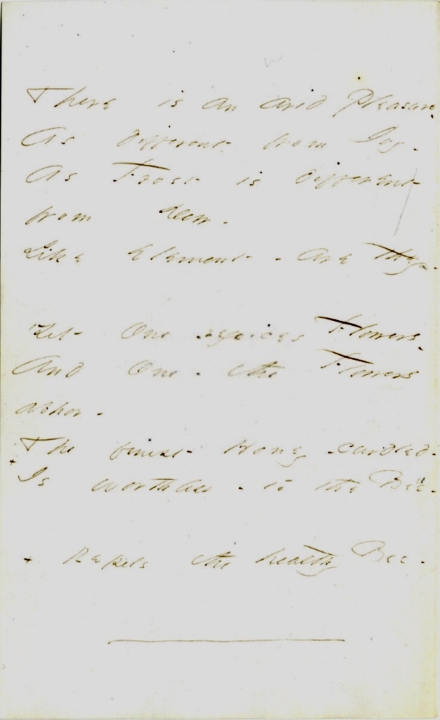 There is an arid Pleasure
As different from Joy -
As Frost is different
from Dew -
Like Element - Are they -
Yet One rejoices Flowers
And One - the Flowers
abhor -
The finest Honey - curdled -
+ Is worthless - to the Bee -
+ Repels the healthy Bee -